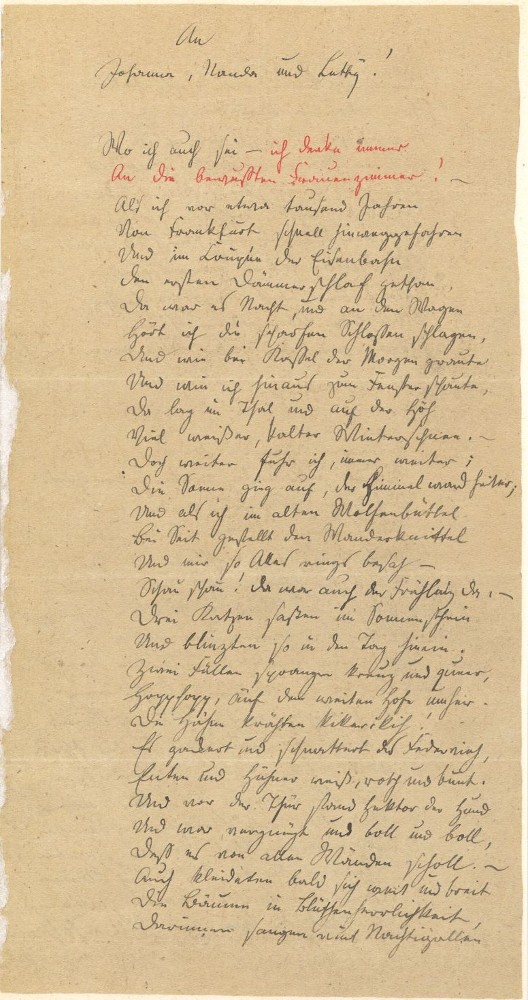 An
Johanna, Nanda und Letty!
Wo ich auch sei – ich denke immer
An die bewußten Frauenzimmer! –
Als ich vor etwa tausend Jahren
Von Frankfurt schnell hinweggefahren
Und im Coupée der Eisenbahn
Den ersten Dämmerschlaf gethan,
Da war es Nacht, und an den Wagen
Hört ich die scharfen Schlossen schlagen,
Und wie bei Kassel der Morgen graute
Und wie ich hinaus zum Fenster schaute,
Da lag im Thal und auf der Höh
Viel weißer, kalter Winterschnee. –
Doch weiter fuhr ich, immer weiter;
Die Sonne ging auf, der Himmel ward heiter;
Und als ich im alten Wolfenbüttel
Bei Seit gestellt den Wanderknittel
Und mir so Alles rings besah –
Schau schau! da war auch der Frühling da. –
Drei Katzen saßen im Sonnenschein
Und blinzten so in den Tag hinein.
Zwei Füllen sprangen kreuz und queer,
Hopphopp, auf dem weiten Hofe umher.
Die Hähne krähten Kikerikih!
Es gackert und schnattert das Federvieh,
Enten und Hühner weiß, roth und bunt.
Und vor der Thür stand Hektor der Hund
Und war vergnügt und boll und boll,
Daß es von allen Wänden scholl. –
Auch kleideten bald sich weit und breit
Die Bäume in Blüthenherrlichkeit,
Darinnen sangen die Nachtigallen